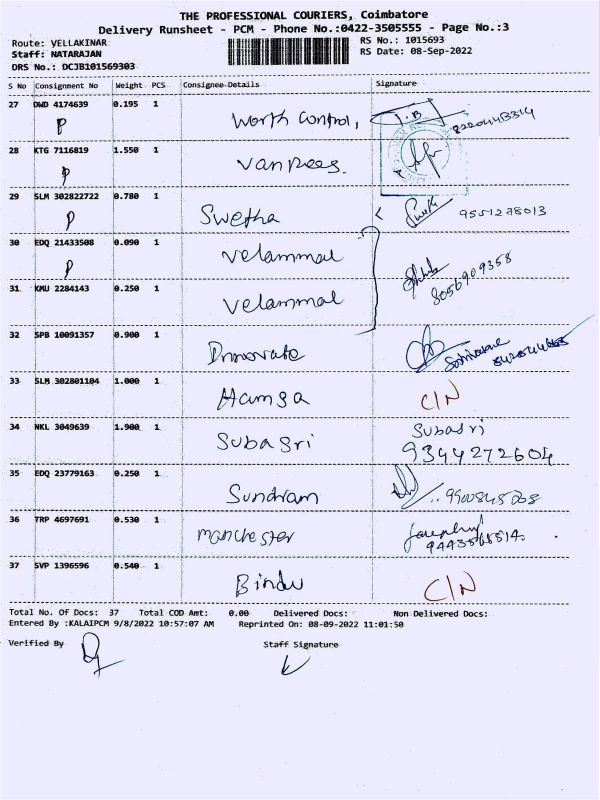 THE PROFESSIONAL COURIERS, Coimbatore
Delivery Runsheet - PCM - Phone No.:0422-3505555 - Page No.:3
Route: VELLAKINAR
RS No.: 1015693
Staff: NATARAJAN
RS Date: 08-Sep-2022
DRS No.: DCJB101569303
S No Consignment No Weight PCS Consignee Details Signature
27 DWD 4174639 0.195 1
P Worth Control,
28 KTG 7116819 1.550 1
P Vanrees.
29 SLM 302822722 0.780 1
P Swetha 9551278013
30 EDQ 21433508 0.090 1
P Velammal
31 KMU 2284143 0.250 1 8056909358
Velammal
32 SPB 10091357 0.900 1
33 SLM 302801104 1.000 1
Hamsa C/N
34 NKL 3049639 1.900 1
Subasri Subasri
9344272604
35 EDQ 23779163 0.250 1
Sundram
36 TRP 4697691 0.530 1
manchester
37 SVP 1396596 0.540 1
Bindu C/N
Total No. Of Docs: 37 Total COD Amt: 0.00 Delivered Docs: Non Delivered Docs:
Entered By :KALAIPCM 9/8/2022 10:57:07 AM Reprinted On: 08-09-2022 11:01:50
Verified By Staff Signature